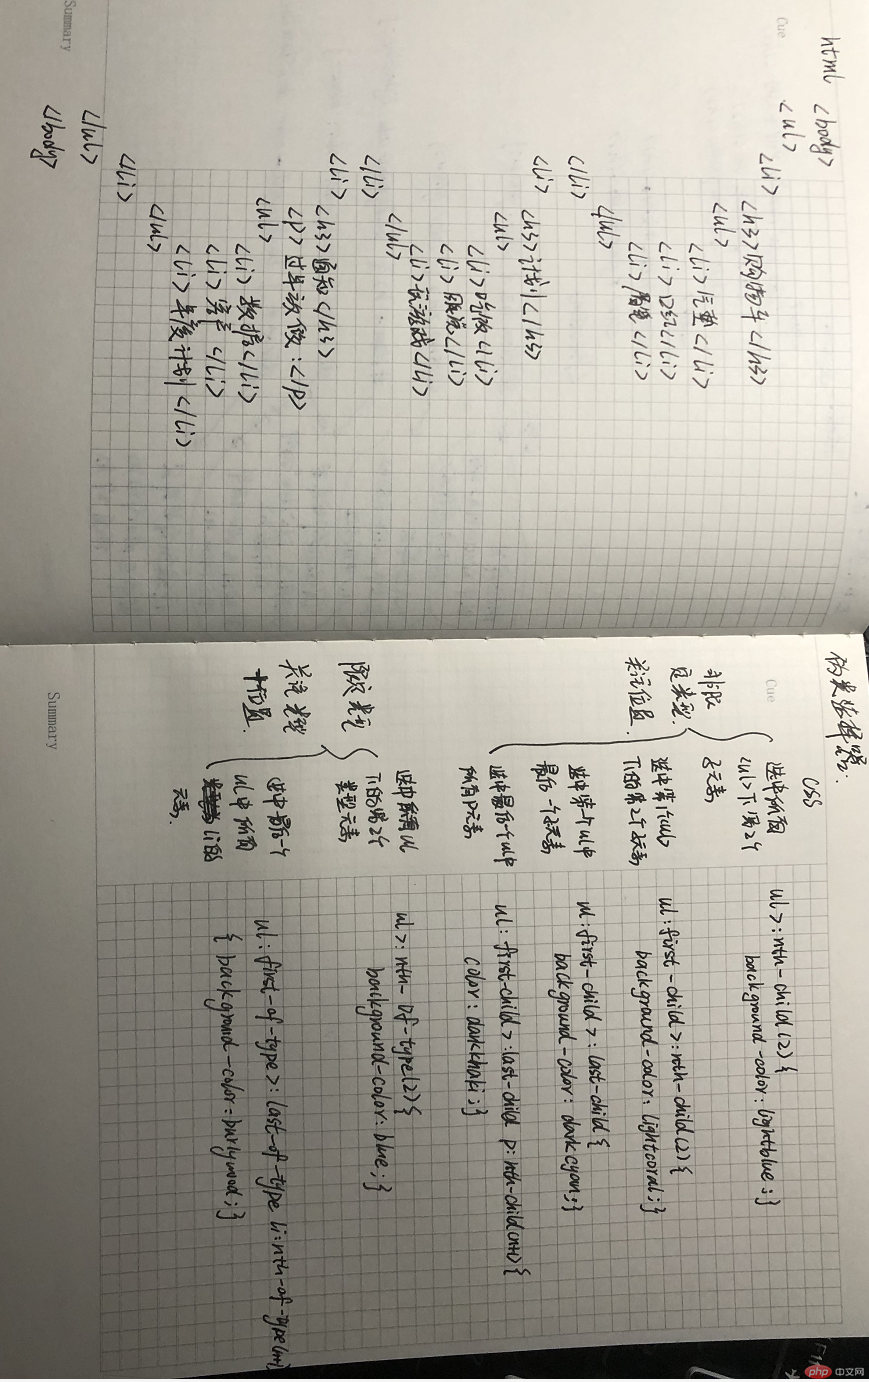 Cue
html <body>
<ul>
<li>
<h3>购物车</h3>
<ul>
<li>汽车</li>
<li>口红</li>
<li></li>
</ul>
</li>
<li> <h3>计划</h3>
<ul>
<li>吃饭<li>
<li>睡觉</li>
<li>玩游戏</li>
</ul>
</li>
<li>
<h3>通知</h3>
<p>过年前做:</p>
<ul>
<li>数据</li>
<li></li>
<li>年度计划</li>
</ul>
</li>
</ul>
</body>
Summary
伪类选择器:
Cue
css
非限定类型:
关注位置
选中所有
<ul>下第2个
子元素
ul>:nth-child(2){
background-color:lightblue;}
选中第一个ul
下的第2个子元素
ul:first-child>:nth-child(2){
background-color:lightcoral;}
选中第一个ul中
最后一个子元素
ul:first-child>:last-child{
background-color:darkcyan;}
选中最后一个ul中
所有p元素
ul:first-child>:last-child p:nth-child(n+1){
color:darkkhaki;}
限定类型
关注类型
+位置
选中 ul
下的第2个
类型元素
ul>:nth-of-type(2){
background-color:blue;}
选中最后一个
ul中所有
li的
元素.
ul:first-of-type>:last-of-type li:nth-of-type(n+1)
{background-color=burlywood;}
Summary
php 中文网